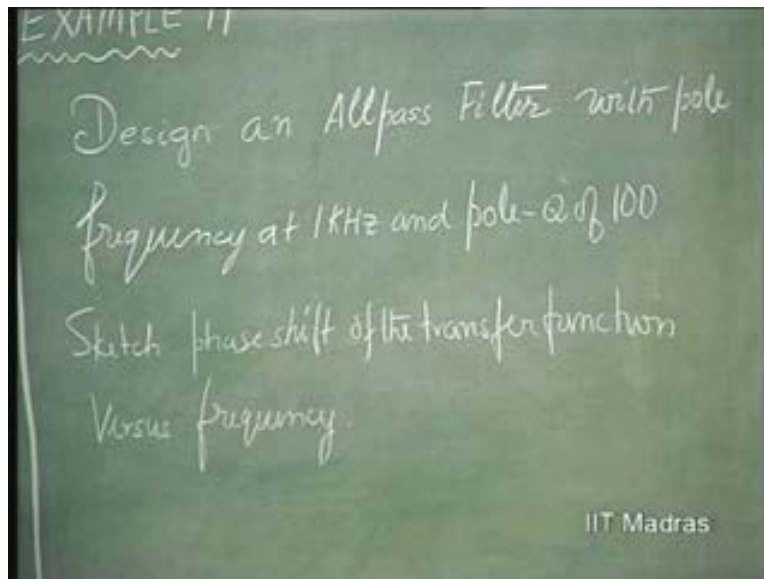 EXAMPLE 11
Design an Allpass Filter with pole
frequency at 1KHz and pole-Q of 100
Sketch phase shift of the transfer function
Versus frequency.
IIT Madras